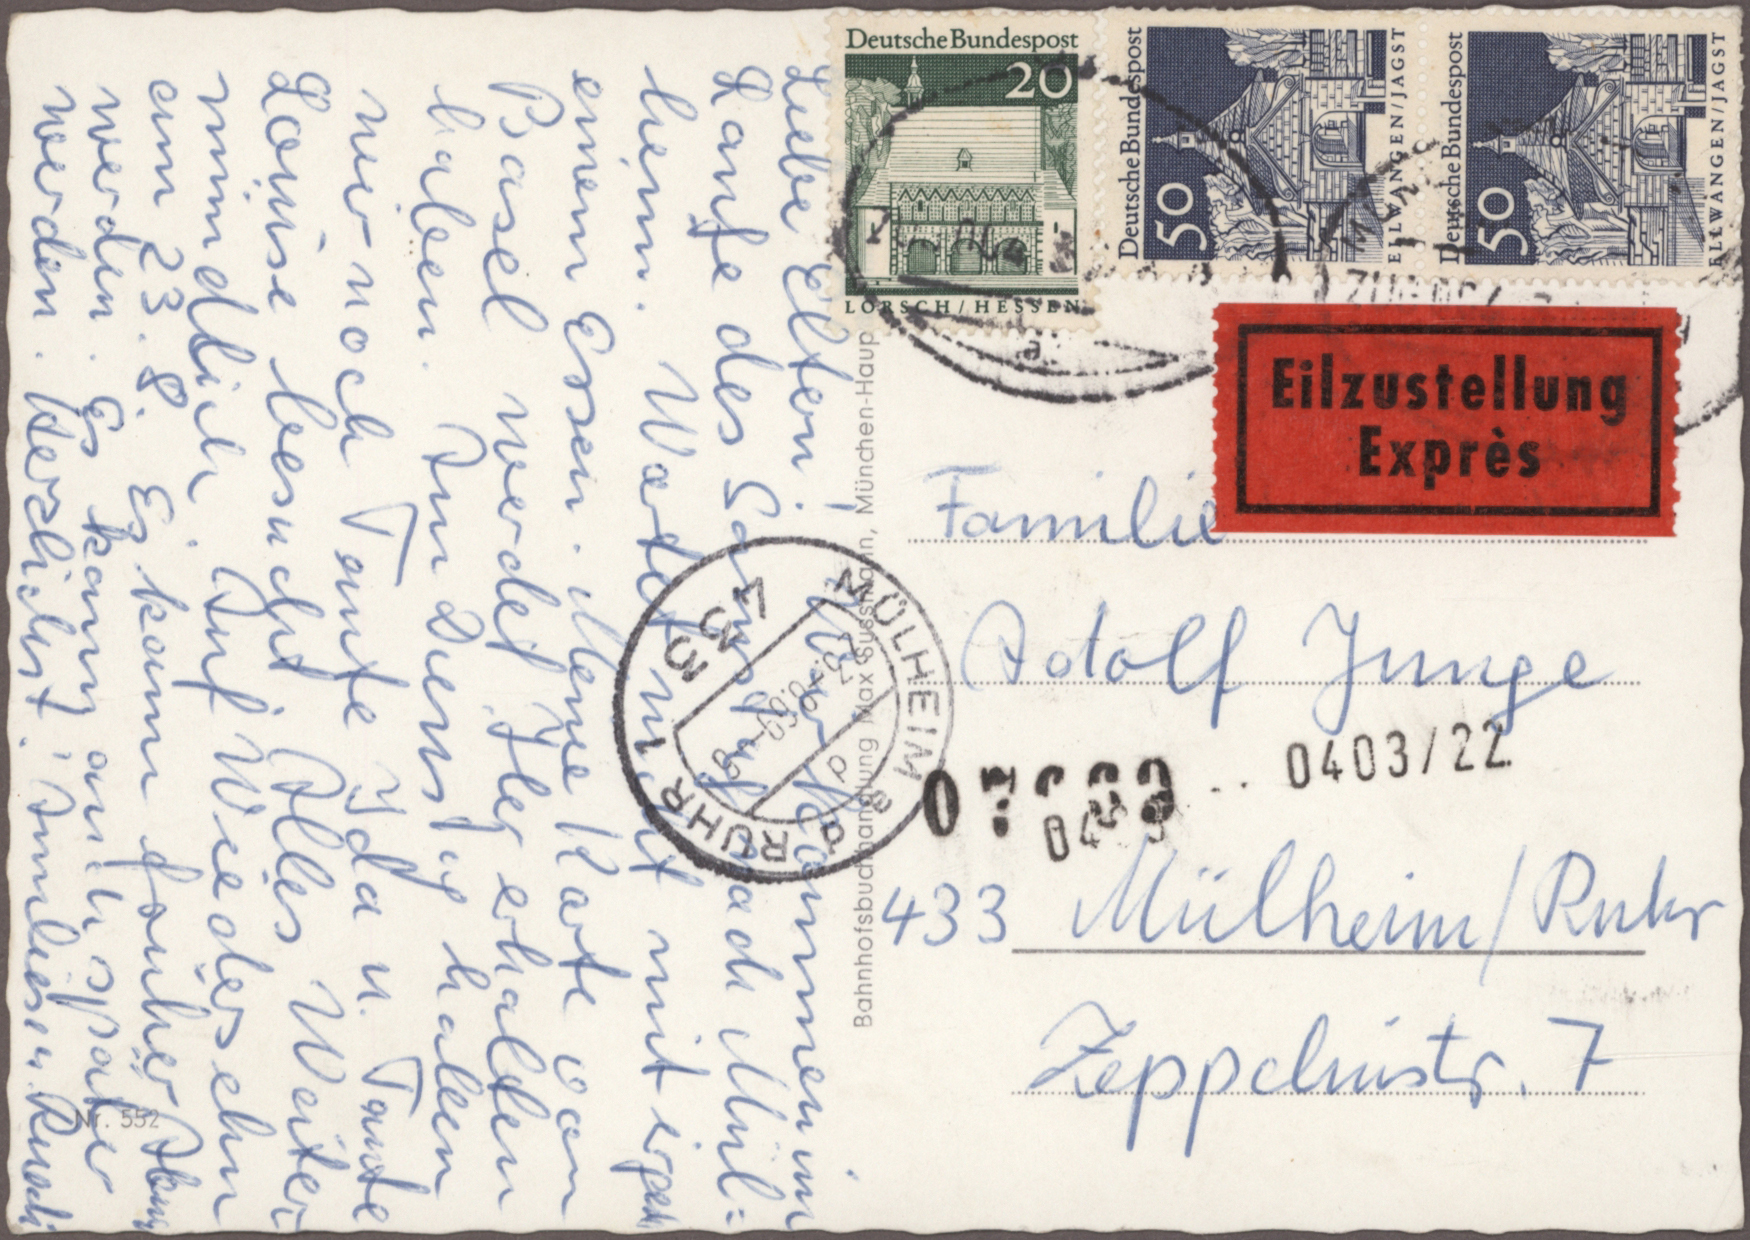 Liebe Eltern! Wir kommen im
Laufe des Samstag nach Mül=
heim. Wartet nicht mit irgend
einem Essen. Meine Karte von
Basel werdet Ihr erhalten
haben. Am Dienstag haben
wir noch Tante Ida u. Tante
Louise besucht. Alles Weitere
mündlich. Auf Wiedersehn
am 23. 8. Es kann früher Abend
werden. Es kann auch später
werden. Herzlichst!
Nr. 552
Bahnhofsbuchhandlung Max Sussmann, München-Haup
Deutsche Bundespost
20
LORSCH/HESSEN
Deutsche Bundespost
50
ELLWANGEN/JAGST
Deutsche Bundespost
50
ELLWANGEN/JAGST
Eilzustellung
Exprès
Familie
Adolf Junge
0403/22
433 Mülheim/Ruhr
Zeppelinstr. 7
433
MÜLHEIM
RUHR 1